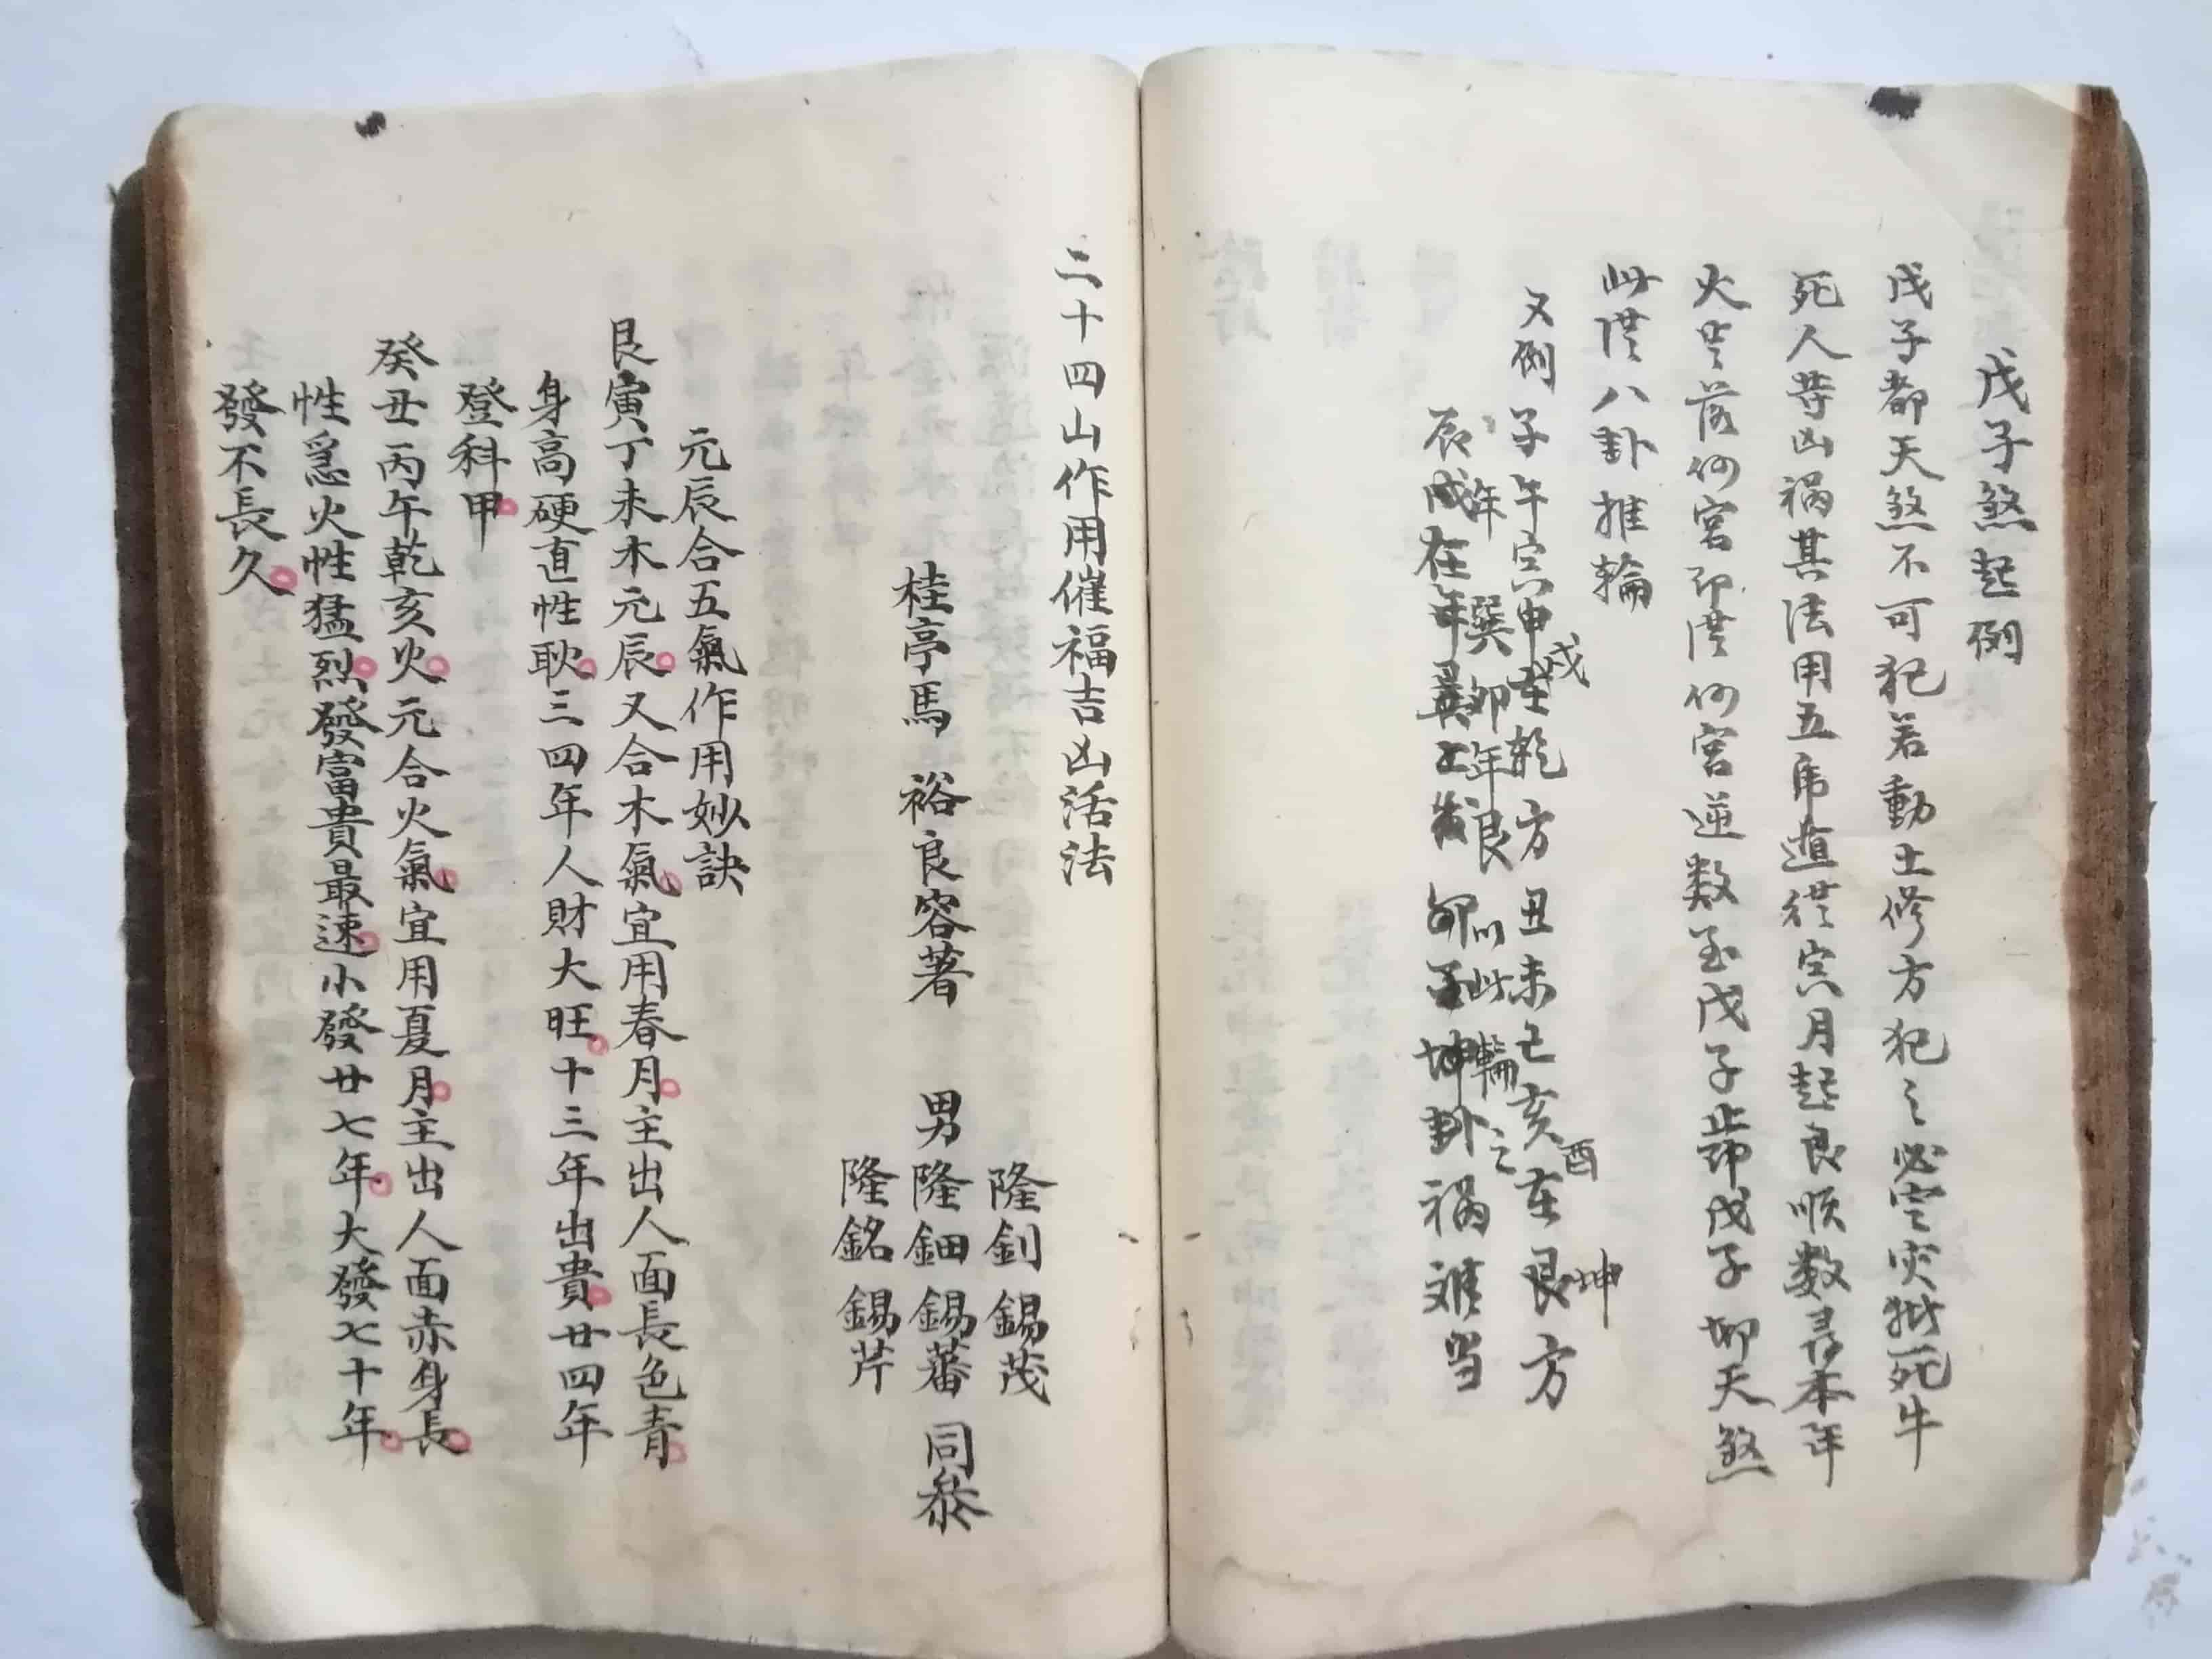 戊子煞起例
戊子都天煞不可犯若動土修方犯之必空灾批死牛
死人苛凶禍其法用五虎遁從寅月起良順数尋本年
火星落何宮即從何宮逆数至戊子止即戊子都天煞
此從八卦推輪
又例子午寅申在乾方丑未巳亥在艮方
戌
酉
坤
年巽卯年艮以此輪之
辰戌在年巽上卯至坤卦禍难当
二十四山作用催福吉凶活法
隆釗錫茂
桂亭馬裕良容著男隆鈿錫蕃同叅
隆銘錫芹
元辰合五氣作用妙訣
艮寅丁未木元辰又合木氣宜用春月主出人面長色青
身高硬直性耿三四年人財大旺十三年出貴廿四年
登科甲
癸丑丙午乾亥火元合火氣宜用夏月主出人面赤身長
性急火性猛烈發富貴最速小發廿七年大發七十年
發不長久